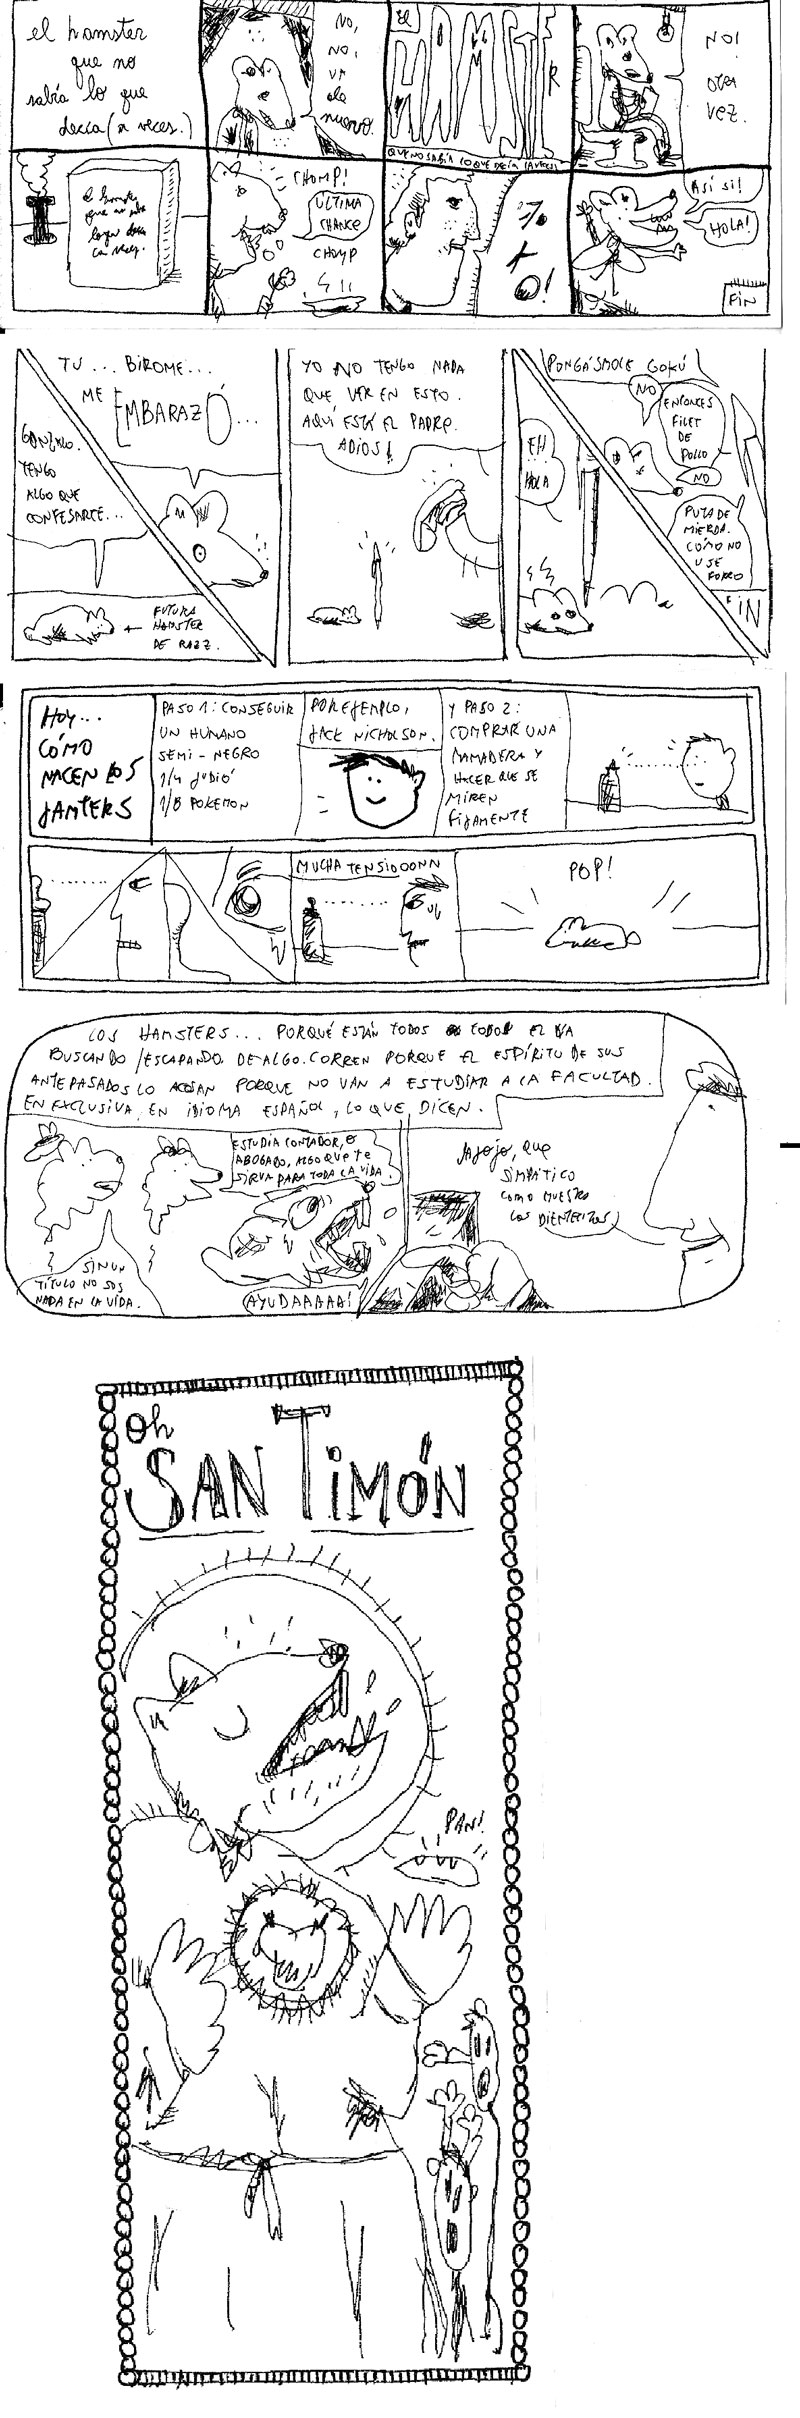 el hamster
que no
sabía lo que
decía (a veces.)
NO,
NO,
VA
de
nuevo.
EL
HAMSTER
QUE NO SABÍA LO QUE DECÍA (A VECES)
NO!
OTRA
VEZ.
el hamster
que no
lo que
CHOMP!
ULTIMA
CHANCE
CHOMP
ASÍ SI!
HOLA!
FIN
TU... BIROME...
ME
EMBARAZÓ...
GONZALO.
TENGO
ALGO QUE
CONFESARTE...
FUTURA
HAMSTER
DE RAZZ.
YO NO TENGO NADA
QUE VER EN ESTO.
AQUÍ ESTÁ EL PADRE.
ADIOS!
PONGÁSMOLE GOKÚ
NO
ENTONCES
FILET
DE
POLLO
NO
EH
HOLA
PUTA DE
MIERDA.
CÓMO NO
USE
FORRO
FIN
HOY...
CÓMO
NACEN LOS
JAMTERS
PASO 1: CONSEGUIR
UN HUMANO
SEMI-NEGRO
1/4 JUDIÓ
1/8 POKEMON
POR EJEMPLO,
JACK NICHOLSON.
Y PASO 2:
COMPRAR UNA
MAMADERA Y
HACER QUE SE
MIREN
FIJAMENTE
MUCHA TENSIOOONN
POP!
LOS HAMSTERS... PORQUÉ ESTÁN TODOS TODO EL DÍA
BUSCANDO/ESCAPANDO DE ALGO. CORREN PORQUE EL ESPÍRITU DE SUS
ANTEPASADOS LO ACOSAN PORQUE NO VAN A ESTUDIAR A LA FACULTAD.
EN EXCLUSIVA, EN IDIOMA ESPAÑOL, LO QUE DICEN.
SIN UN
TÍTULO NO SOS
NADA EN LA VIDA.
ESTUDIA CONTADOR, O
ABOGADO, ALGO QUE TE
SIRVA PARA TODA LA VIDA.
AYUDAAAAA!
JAJOJO, QUE
SIMPÁTICO
COMO MUESTRO
LOS DIENTECITOS
Oh
SAN TIMÓN
PAN!